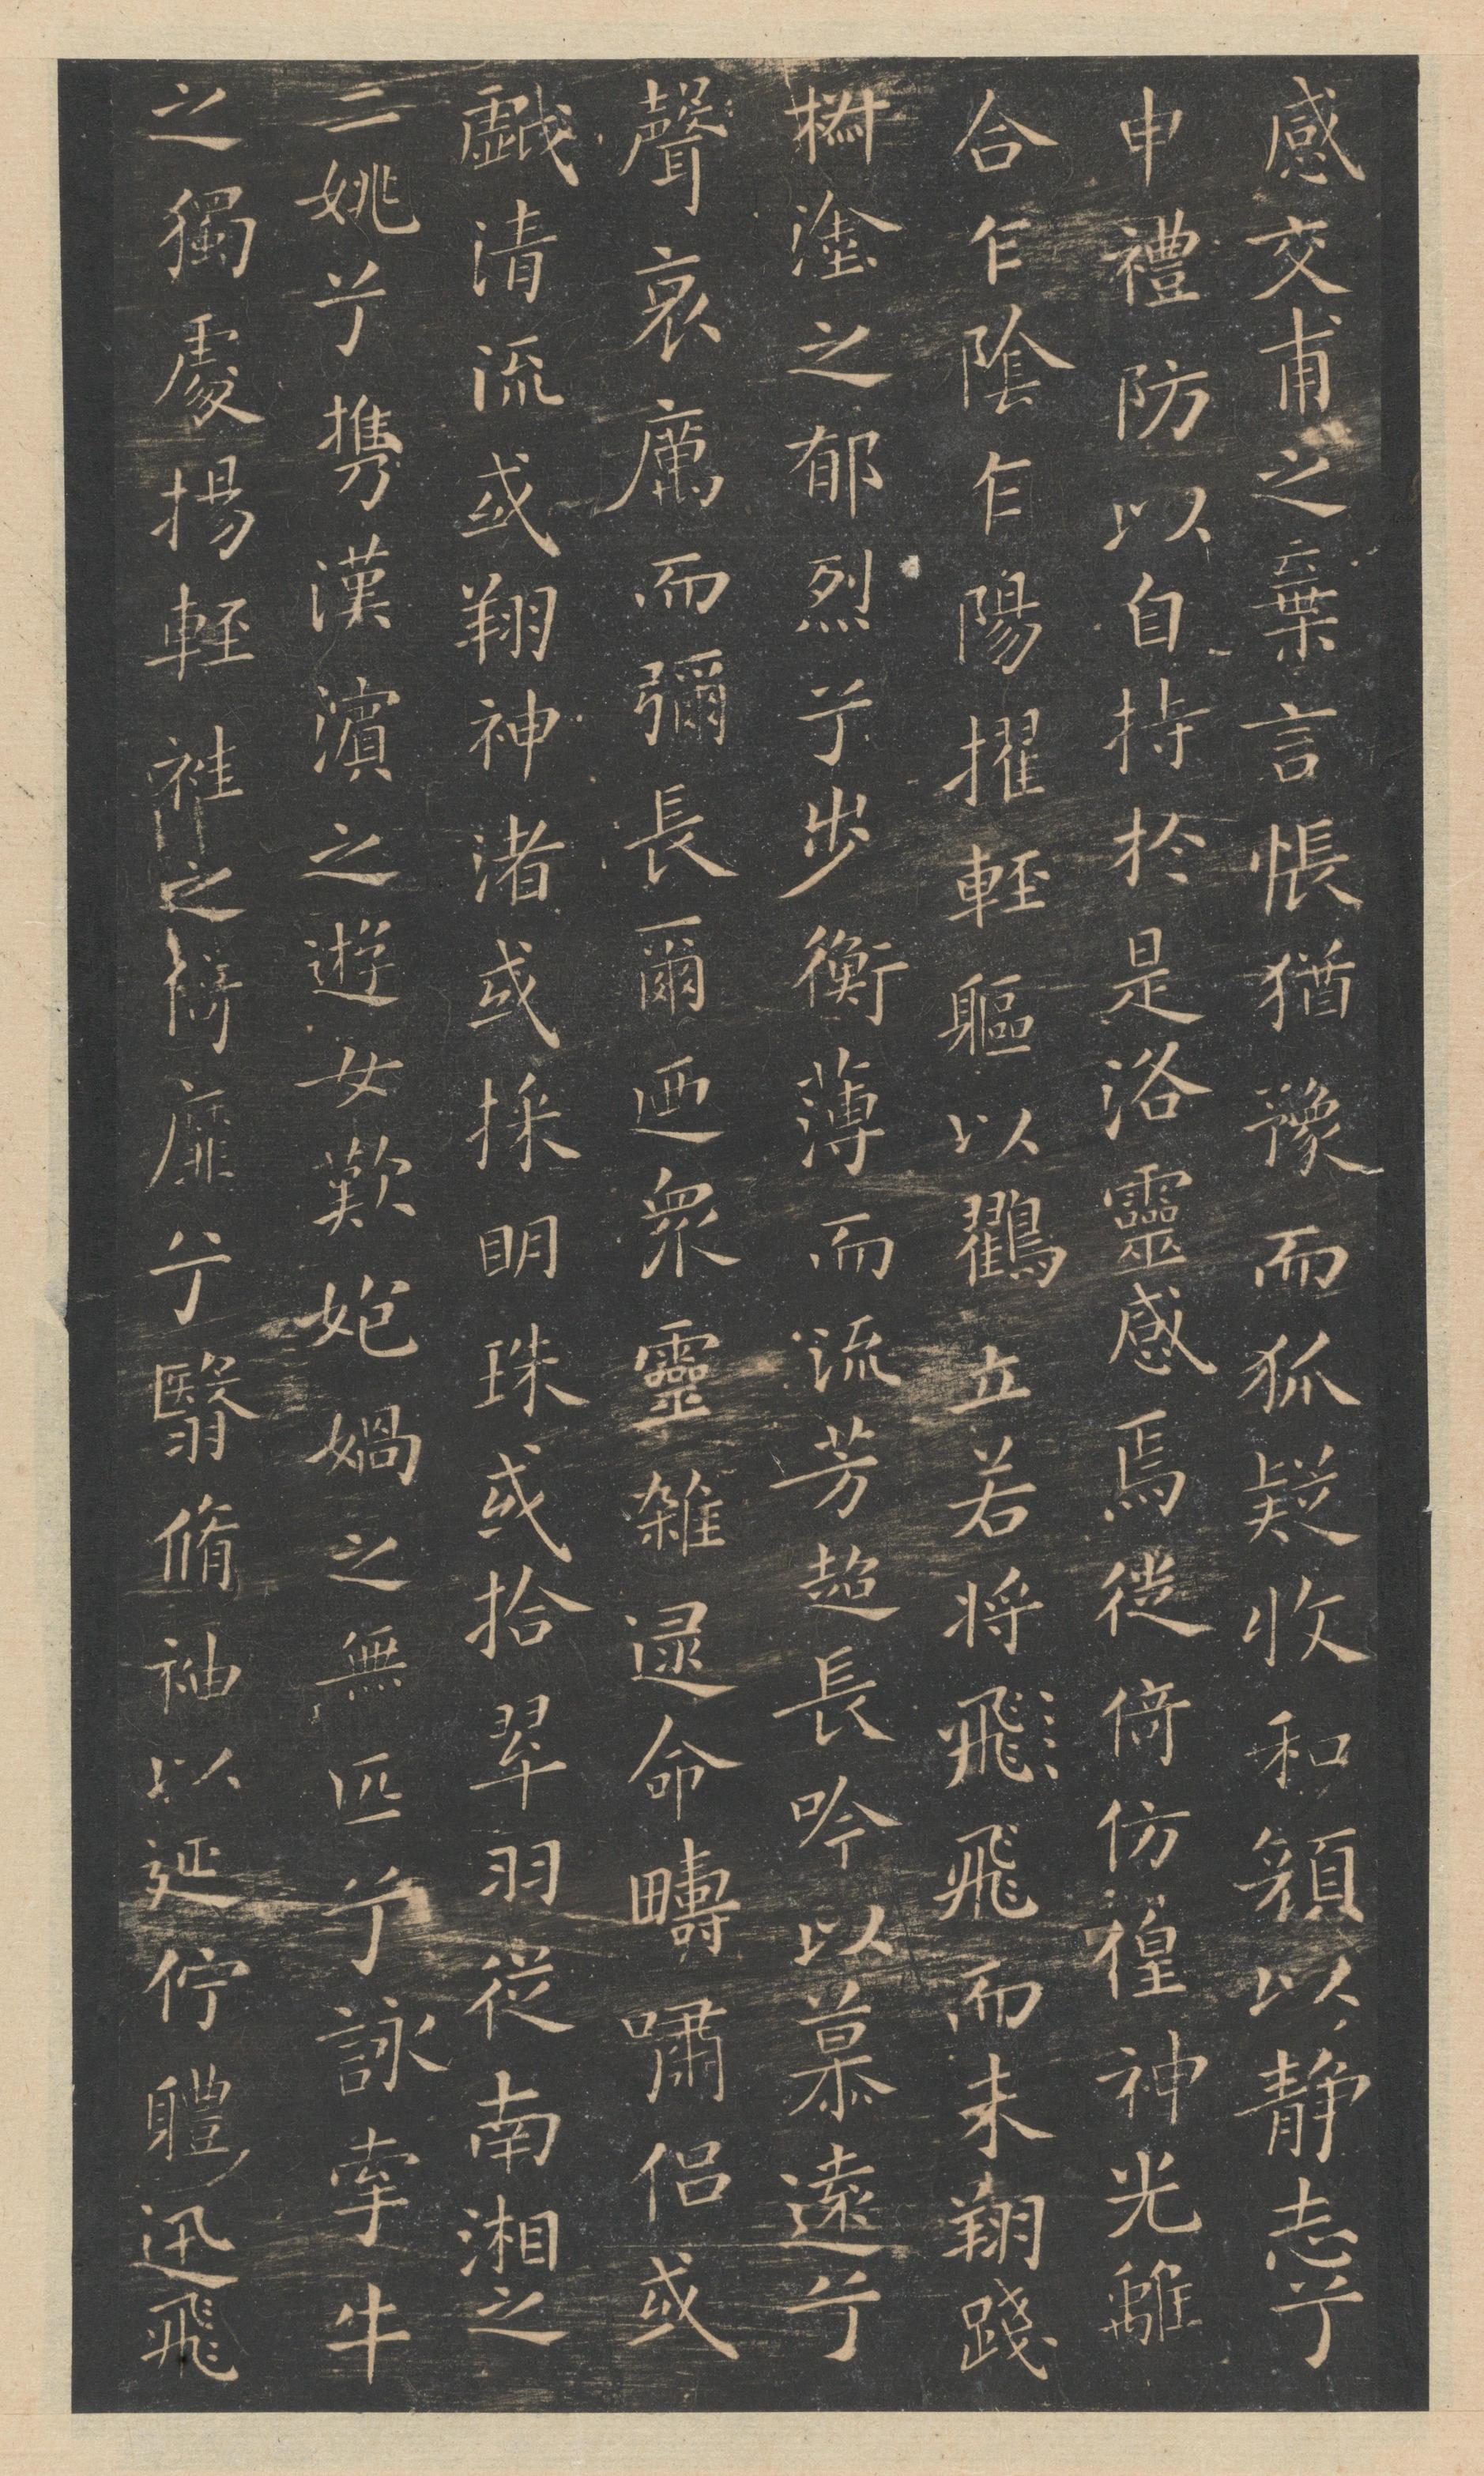 感交甫之棄言悵猶豫而狐疑收和顏以靜志兮
申禮防以自持於是洛靈感焉徙倚仿徨神光離
合乍陰乍陽擢輕軀以鸖立若將飛飛而未翔踐
椒塗之郁烈兮步衡薄而流芳超長吟以慕遠兮
聲哀厲而彌長爾迺眾靈雜逯命疇嘯侶或
戲清流或翔神渚或採明珠或拾翠羽從南湘之
二姚兮攜漢濱之遊女歎媤媧之無匹兮詠牽牛
之獨處揚輕袿之倚靡兮翳脩袖以延佇體迅飛